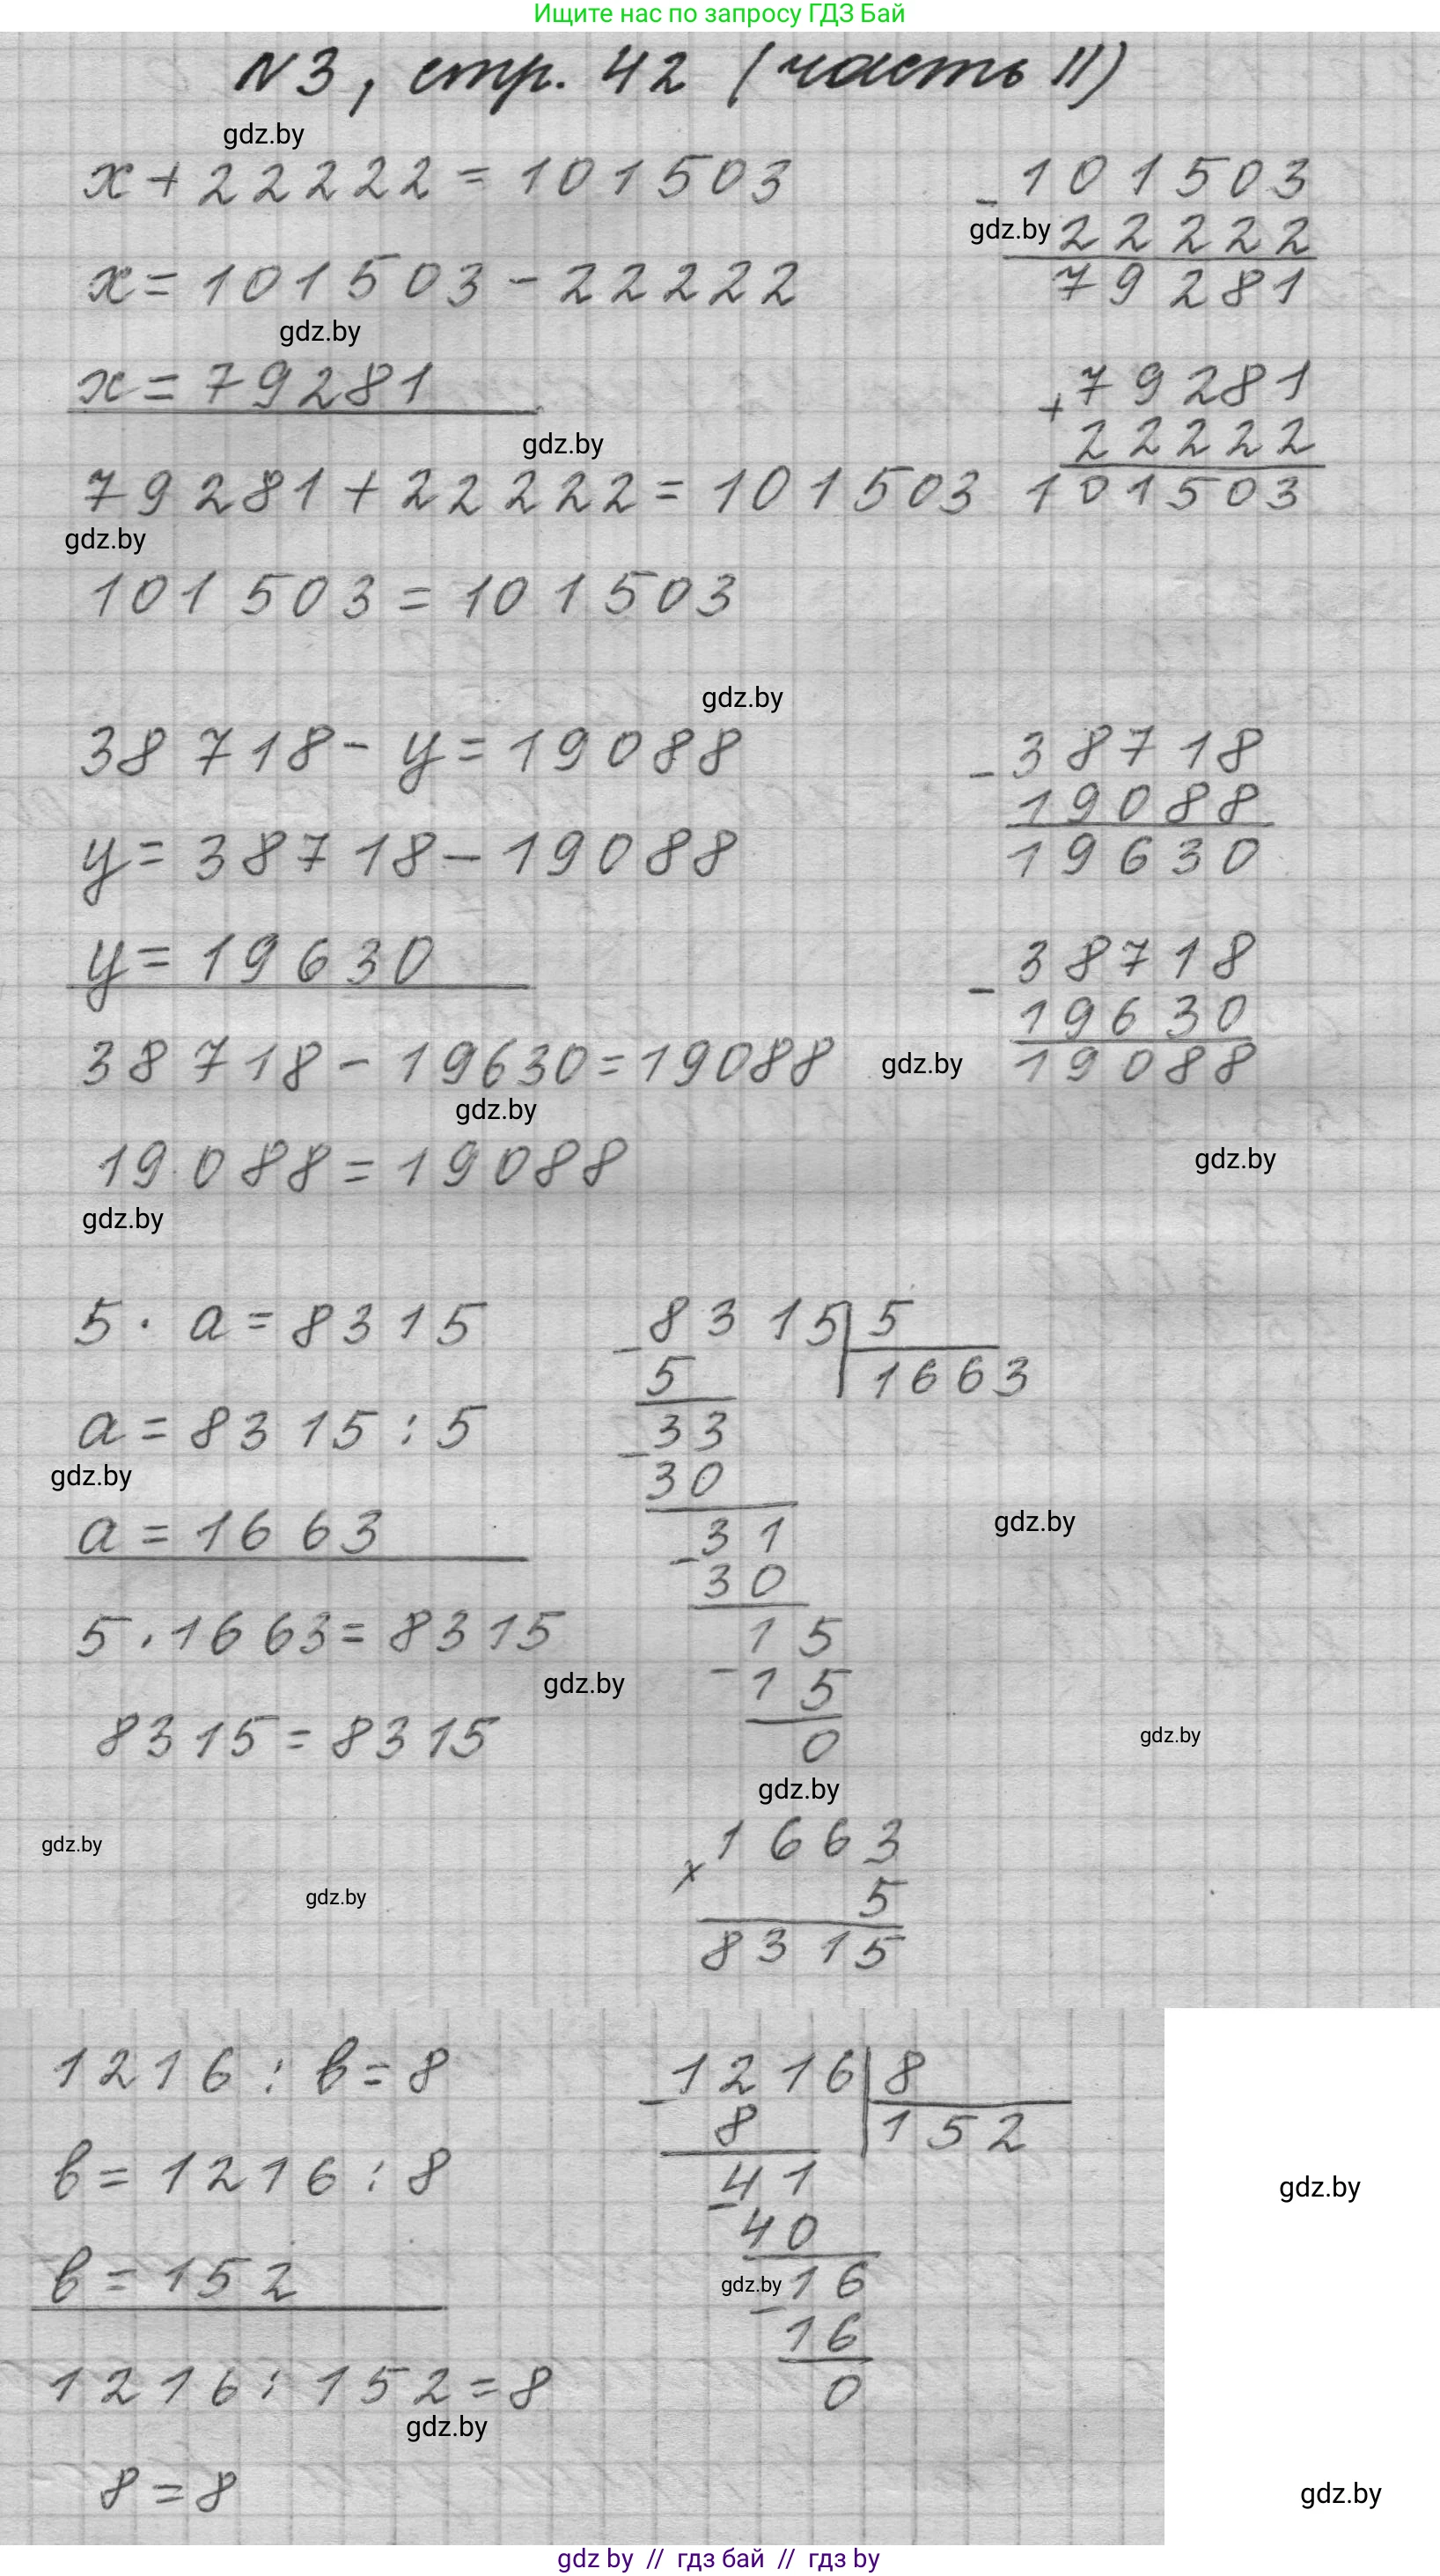 Ищите нас по запросу ГДЗ Бай
N3, стр. 42 (часть II)
gdz.by
x + 22222 = 101503
- 101503
gdz.by 22222
79281
x = 101503 - 22222
gdz.by
x = 79281
+ 79281
22222
101503
gdz.by
79281 + 22222 = 101503
gdz.by
101503 = 101503
gdz.by
38718 - y = 19088
- 38718
19088
19630
y = 38718 - 19088
y = 19630
- 38718
19630
19088
38718 - 19630 = 19088
gdz.by
gdz.by
19088 = 19088
gdz.by
gdz.by
5 · a = 8315
- 8315 | 5
5 1663
- 33
30
- 31
30
- 15
15
0
a = 8315 : 5
gdz.by
a = 1663
gdz.by
5 · 1663 = 8315
gdz.by
8315 = 8315
gdz.by
gdz.by
gdz.by
gdz.by
x 1663
5
8315
1216 : b = 8
- 1216 | 8
8 152
- 41
40
gdz.by 16
- 16
0
b = 1216 : 8
gdz.by
b = 152
1216 : 152 = 8
gdz.by
8 = 8
gdz.by
gdz by // гдз бай // гдз by